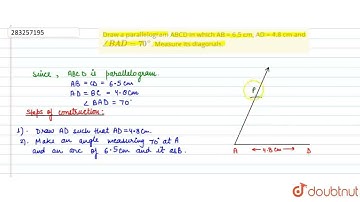 283257195
Draw a parallelogram ABCD in which AB = 6.5 cm, AD = 4.8 cm and
∠BAD = 70°. Measure its diagonals.
Since, ABCD is parallelogram.
AB = CD = 6.5 cm
AD = BC = 4.8 cm
∠ BAD = 70°
Steps of construction:
1). Draw AD such that AD = 4.8 cm.
2). Make an angle measuring 70° at A
and an arc of 6.5 cm and it as B.
P
A
← 4.8 cm →
D
doubtnut